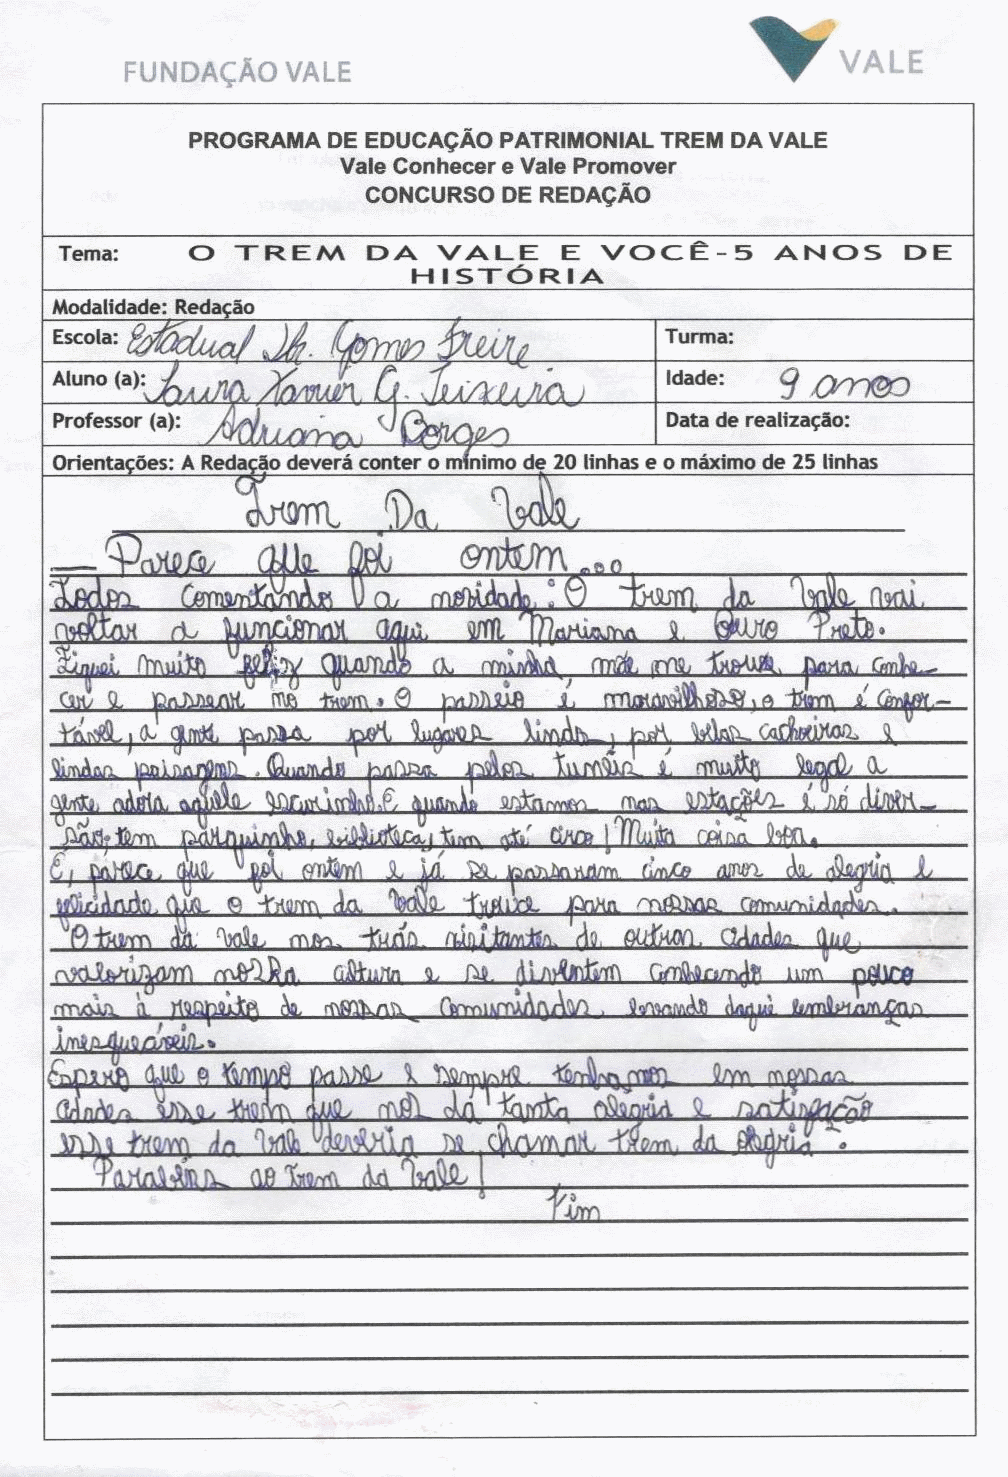 FUNDAÇÃO VALE
VALE
PROGRAMA DE EDUCAÇÃO PATRIMONIAL TREM DA VALE
Vale Conhecer e Vale Promover
CONCURSO DE REDAÇÃO
Tema: O TREM DA VALE E VOCÊ-5 ANOS DE
HISTÓRIA
Modalidade: Redação
Escola: Estadual Dr. Gomes Freire
Turma:
Aluno (a): Laura Xavier G. Teixeira
Idade: 9 anos
Professor (a): Adriana Borges
Data de realização:
Orientações: A Redação deverá conter o mínimo de 20 linhas e o máximo de 25 linhas
Trem Da Vale
— Parece que foi ontem...
Todos comentando a novidade: O trem da Vale vai
voltar a funcionar aqui em Mariana e Ouro Preto.
Fiquei muito feliz quando a minha mãe me trouxe para conhe-
cer e passear no trem. O passeio é maravilhoso, o trem é confor-
tável, a gente passa por lugares lindo, por belas cachoeiras e
lindas paisagens. Quando passa pelos tuneis é muito legal a
gente adora aquele escurinho. E quando estamos nas estações é só diver-
são: tem parquinho, biblioteca, tem até circo! Muita coisa boa.
É, parece que foi ontem e já se passaram cinco anos de alegria e
felicidade que o trem da Vale trouxe para nossas comunidades.
O trem da Vale nos trás visitantes de outras cidades que
valorizam nossa cultura e se divertem conhecendo um pouco
mais à respeito de nossas comunidades levando daqui lembranças
inesquecíveis.
Espero que o tempo passe e sempre tenhamos em nossas
cidades esse trem que nos dá tanta alegria e satisfação
esse trem da Vale deveria se chamar trem da alegria.
Parabéns ao trem da Vale!
Fim